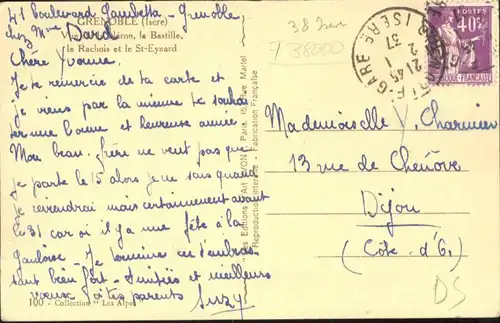 41 boulevard Gambetta - Grenoble
chez Mme Dard
GRENOBLE (Isère)
la Bastille,
le Rachois et le St-Eynard
Chère Yvonne.
Je te remercie de ta carte et
je viens par la mienne te souhai
ter une bonne et heureuse année.
Mon beau-frère ne veut pas que
je parte le 15 alors je ne sais quand
je reviendrai mais certainement avant
le 31 car il y a une fête à la
gauloise. Je termine en t'embras
sant bien fort. Amitiés et meilleurs
vœux à tes parents Suzy
100 - Collection "Les Alpes"
Les Editions d'Art Paris, 15, Rue Martel
Reproduction interdite - Fabrication Française
GARE
ISERE
2
37
POSTES
40c
Mademoiselle Y Charnier
13 rue de Chenôve
Dijon
(Côte-d'Or)
DS